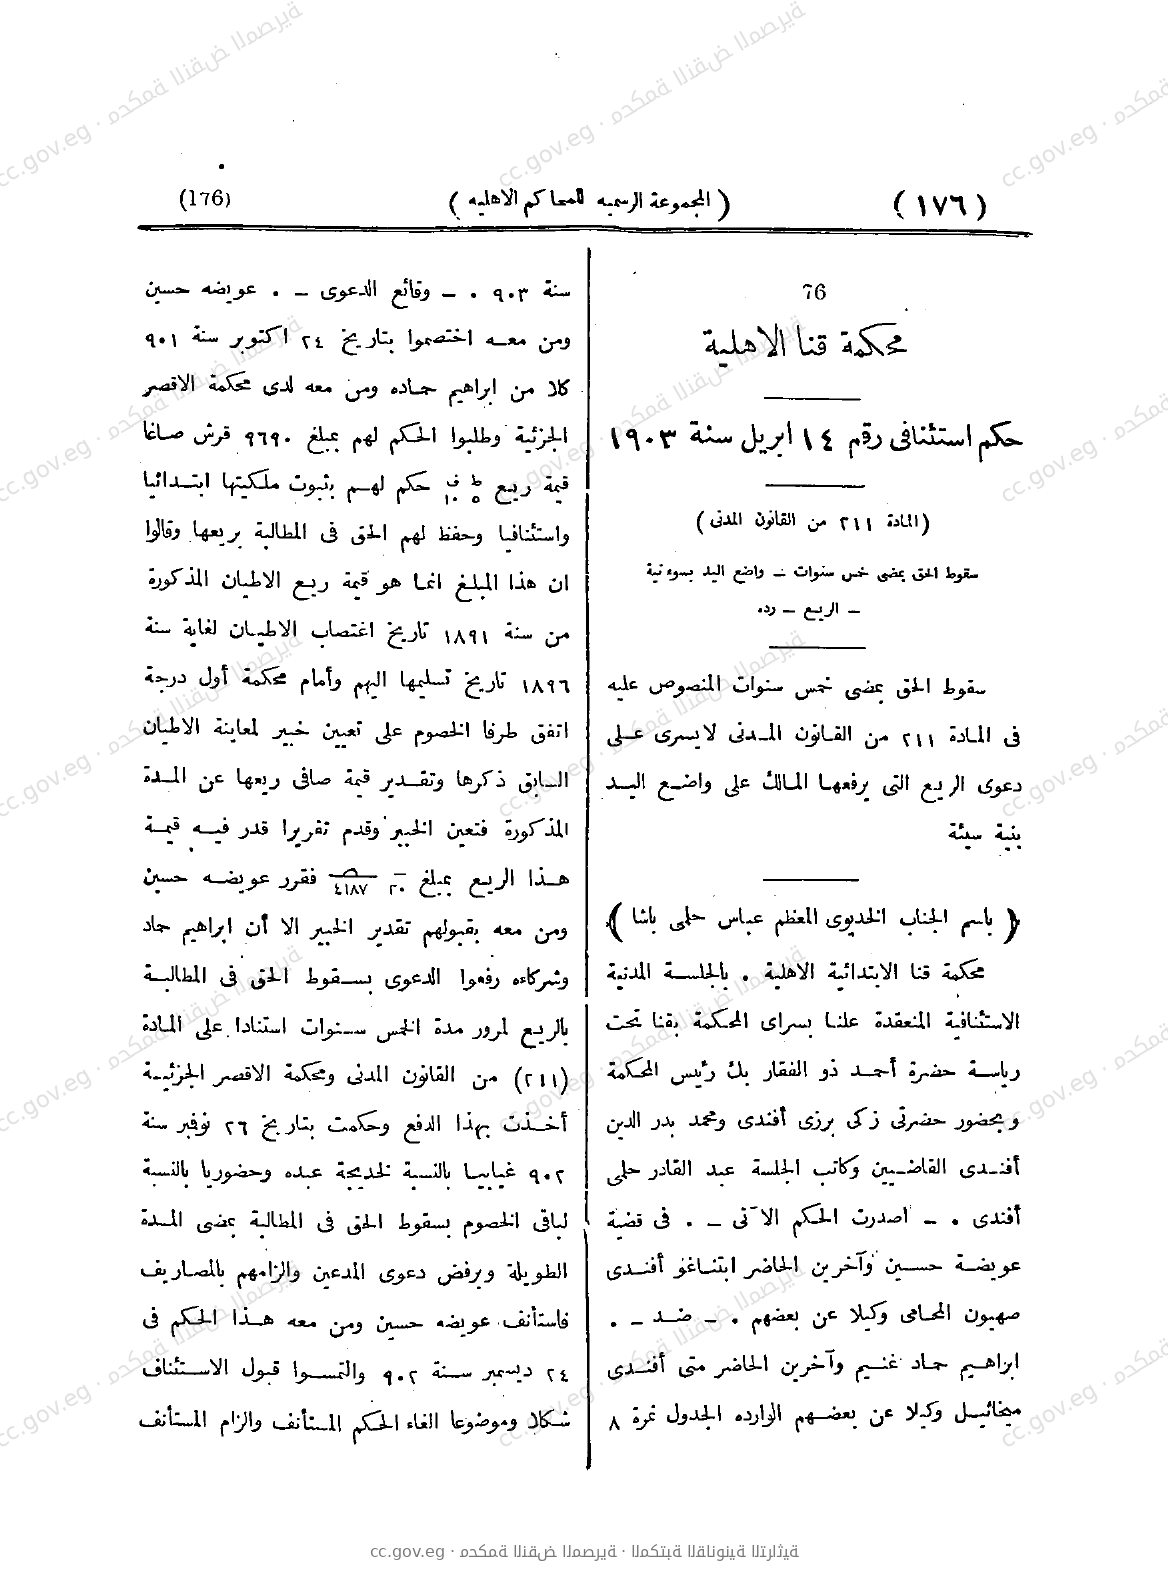 (١٧٦) (المجموعة الرسميه للمحاكم الاهليه) (176)
76
محكمة قنا الاهلية
حكم استئنافى رقم ١٤ ابريل سنة ١٩٠٣
(المادة ٢١١ من القانون المدنى)
سقوط الحق بمضى خمس سنوات – واضع اليد بسوء نية
– الريع – رده
سقوط الحق بمضى خمس سنوات المنصوص عليه
فى المادة ٢١١ من القانون المدنى لا يسرى على
دعوى الريع التى يرفعها المالك على واضع اليد
بنية سيئة
(باسم الجناب الخديوى المعظم عباس حلمى باشا)
محكمة قنا الابتدائية الاهلية . بالجلسة المدنية
الاستئنافية المنعقدة علنا بسراى المحكمة بقنا تحت
رياسة حضرة أحمد ذو الفقار بك رئيس المحكمة
وبحضور حضرتى زكى برزى أفندى ومحمد بدر الدين
أفندى القاضيين وكاتب الجلسة عبد القادر حلمى
أفندى . – اصدرت الحكم الآتى – . فى قضية
عويضة حسين وآخرين الحاضر ابتناغو أفندى
صهيون المحامى وكيلا عن بعضهم . – ضد – .
ابراهيم جاد غنيم وآخرين الحاضر متى أفندى
ميخائيل وكيلا عن بعضهم الوارده الجدول نمرة ٨
سنة ٩٠٣ . – وقائع الدعوى – . عويضه حسين
ومن معه اختصموا بتاريخ ٢٤ اكتوبر سنة ٩٠١
كلا من ابراهيم حماده ومن معه لدى محكمة الاقصر
الجزئية وطلبوا الحكم لهم بمبلغ ٩٦٩٠ قرش صاغا
قيمة ريع ط ٥ ف ١٠ حكم لهم بثبوت ملكيتها ابتدائيا
واستئنافيا وحفظ لهم الحق فى المطالبة بريعها وقالوا
ان هذا المبلغ انما هو قيمة ريع الاطيان المذكورة
من سنة ١٨٩١ تاريخ اغتصاب الاطيان لغاية سنة
١٨٩٦ تاريخ تسليمها اليهم وأمام محكمة أول درجة
اتفق طرفا الخصوم على تعيين خبير لمعاينة الاطيان
السابق ذكرها وتقدير قيمة صافى ريعها عن المدة
المذكورة فتعين الخبير وقدم تقريرا قدر فيه قيمة
هذا الريع بمبلغ ٢٠ ٤١٨٧ فقرر عويضه حسين
ومن معه بقبولهم تقدير الخبير الا أن ابراهيم جاد
وشركاه رفعوا الدعوى بسقوط الحق فى المطالبة
بالريع لمرور مدة الخمس سنوات استنادا على المادة
(٢١١) من القانون المدنى ومحكمة الاقصر الجزئية
أخذت بهذا الدفع وحكمت بتاريخ ٢٦ نوفمبر سنة
٩٠٢ غيابيا بالنسبة لخديجة عبده وحضوريا بالنسبة
لباقى الخصوم بسقوط الحق فى المطالبة بمضى المدة
الطويلة وبرفض دعوى المدعين والزامهم بالمصاريف
فاستأنف عويضه حسين ومن معه هذا الحكم فى
٢٤ ديسمبر سنة ٩٠٢ والتمسوا قبول الاستئناف
شكلا وموضوعا الغاء الحكم المستأنف والزام المستأنف
cc.gov.eg · محكمة النقض المصرية · المكتبة القانونية التراثية